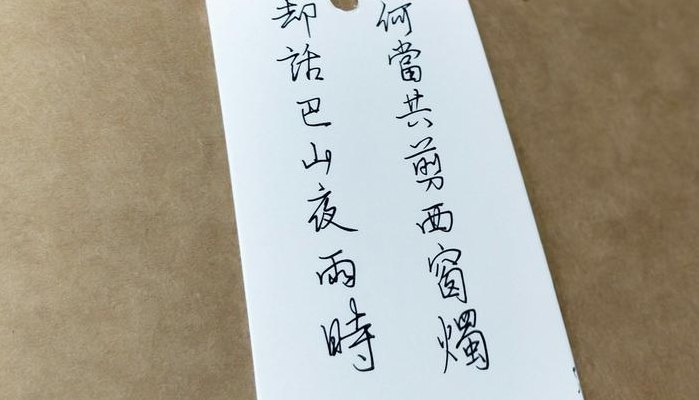 何當共剪西窗燭
却話巴山夜雨時